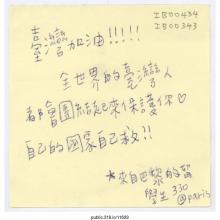 IB00434
IB00343
臺灣加油!!!!!
全世界的臺灣人
都會團結起來保護你♡
自己的國家自己救!!
*來自巴黎的留
學生 330
@paris
public.318.io/11689